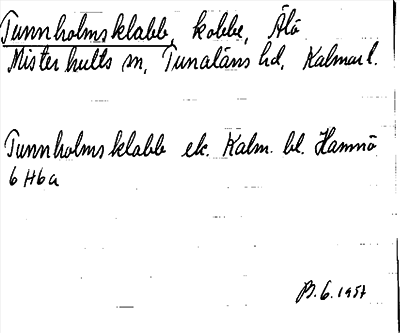 Tunnholmsklabb, kobbe, Älö
Misterhults sn, Tunaläns hd, Kalmar l.
Tunnholmsklabb ek. Kalm. bl. Hamnö
6 H6a
B. 6. 1957